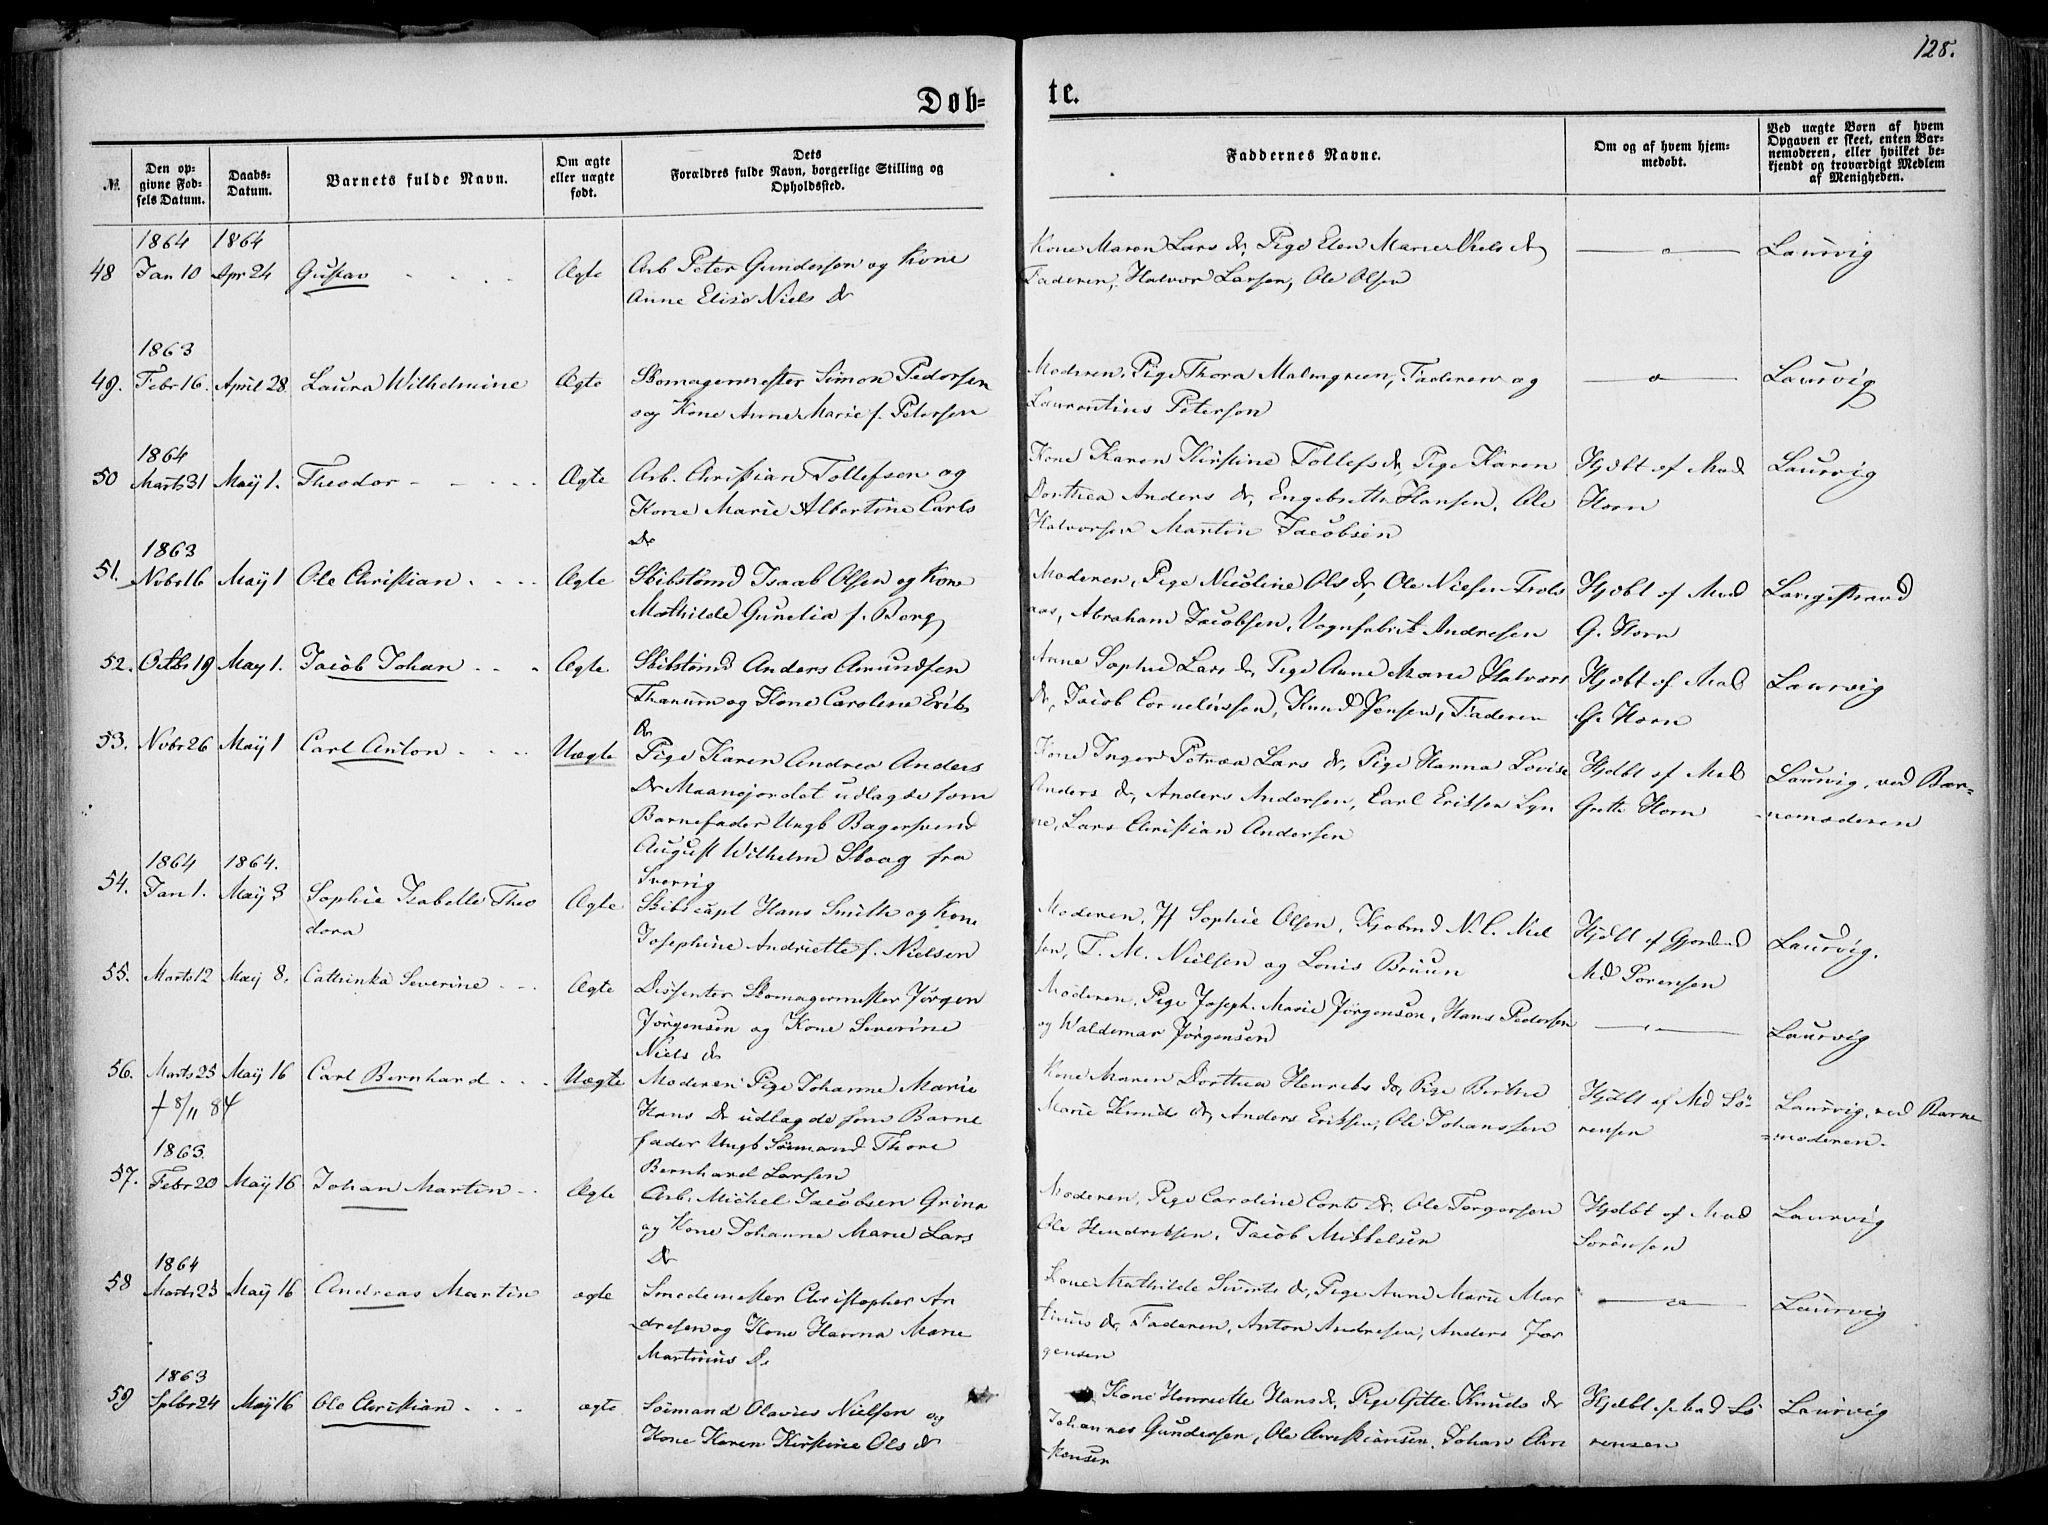 128.
Døb=
te.
№
Den op-
givne Fød-
sels Datum.
Daabs-
Datum.
Barnets fulde Navn.
Om ægte
eller uægte
født.
Dets
Forældres fulde Navn, borgerlige Stilling og
Opholdssted.
Faddernes Navne.
Om og af hvem hjem-
medøbt.
Ved uægte Børn af hvem
Opgaven er skeet, enten Bar-
nemoderen, eller hvilket be-
kjendt og troværdigt Medlem
af Menigheden.
1864 1864
48 Jan 10 Apr 24 Gustav Ægte Arb Peter Gundersen og Kone
Anne Elise Niels dr
Kone Maren Lars dr, Pige Elen Marie Niels dr
Faderen, Halvor Larsen, Ole Olsen
Laurvig
1863
49. Febr 16. April 28. Laura Wilhelmine Ægte Skomagermester Simon Pedersen
og Kone Anne Marie f. Petersen
Moderen, Pige Thora Malmgreen, Faderen og
Laurentius Petersen
Laurvig
1864
50 Marts 31 May 1. Theodor Ægte Arb. Christian Tollefsen og
Kone Marie Albertine Carls
Dr
Kone Karen Kirstine Tollefs dr, Pige Karen
Dorthea Anders dr, Engebreth Hansen, Ole
Halvorsen Martin Jacobsen
Hjdbt af Mad
Horn
Laurvig
1863
51. Nvbr 16 May 1 Ole Christian Ægte Skibstømd Isaak Olsen og Kone
Mathilde Gunelia f. Berg
Moderen, Pige Nicoline Ols dr, Ole Nielsen Trols
aas, Abraham Jacobsen, Vognfabrikt Andresen
Hjdbt af Mad
G. Horn
Langestrand
52. Octbr 19 May 1. Jacob Johan Ægte Skibstømd Anders Amundsen
Thanum og Kone Caroline Eriks
Dr
Anne Sophie Lars dr, Pige Anne Marie Halvors
dr, Jacob Corneliussen, Knud Jensen, Faderen
Hjdbt af Mad
G. Horn
Laurvig
53. Nvbr 26 May 1 Carl Anton Uægte Pige Karen Andrea Anders
Dr Maanejordet udlagde som
Barnefader Ungk Bagersvend
August Wilhelm Skoog fra
Sverrig
Kone Inger Petrea Lars dr, Pige Hanna Lovise
Anders dr, Anders Andersen, Carl Eriksen Lyn
ne, Lars Christian Andersen
Hjdbt af Mad
Grethe Horn
Laurvig, ved Bar=
nemoderen
1864 1864.
54. Jan 1. May 3 Sophie Isabelle Theo
dora
Ægte Skibscapt Hans Smith og Kone
Josephine Andriette f. Nielsen
Moderen, Jf Sophie Olsen, Kjøbmd N. C. Niel
sen, T. M. Nielsen og Louis Bruun
Hjdbt af Gjordmd
Md Sørensen
Laurvig.
55. Marts 12 May 8. Cathrinka Severine Ægte Dissenter Skomagermester Jørgen
Jørgensen og Kone Severine
Niels dr
Moderen, Pige Joseph. Marie Jørgensen, Hans Pedersen
og Waldemar Jørgensen
Laurvig
56. Marts 25 May 16 Carl Bernhard Uægte Moderen Pige Johanne Marie
Hans Dr udlagde som Barne
fader Ungk Sømand Thore
Bernhard Larsen
† 8/11 84
Kone Maren Dorthea Henriks dr, Pige Berthe
Marie Knuds dr, Anders Eriksen, Ole Johanssen
Hjdbt af Md Sø-
rensen
Laurvig, ved Barne
=moderen.
1863.
57. Febr 20 May 16 Johan Martin Ægte Arb. Mickel Jacobsen
og Kone Johanne Marie Lars
Dr
Moderen, Pige Caroline Dr, Ole Torgersen
Ole Hendriksen, Jacob Mikkelsen
Hjdbt af Mad
Sørensen
Laurvig
1864
58 Marts 23 May 16 Andreas Martin ægte Smedemester Christopher An
dresen og Kone Hanna Marie
Martinius Dr
Kone Mathilde Siverts dr, Pige Anne Marie Mar
tinius dr, Faderen, Anton Andresen, Anders Jør
gensen
Laurvig
1863
59 Sptbr 24 May 16 Ole Christian ægte Sømand Olavies Nielsen og
Kone Karen Kirstine Ols dr
Kone Henriette Hans dr, Pige Gitte Knuds dr
Johannes Gundersen, Ole Christiansen, Johan
Hjdbt af Mad Sø
rensen
Laurvig